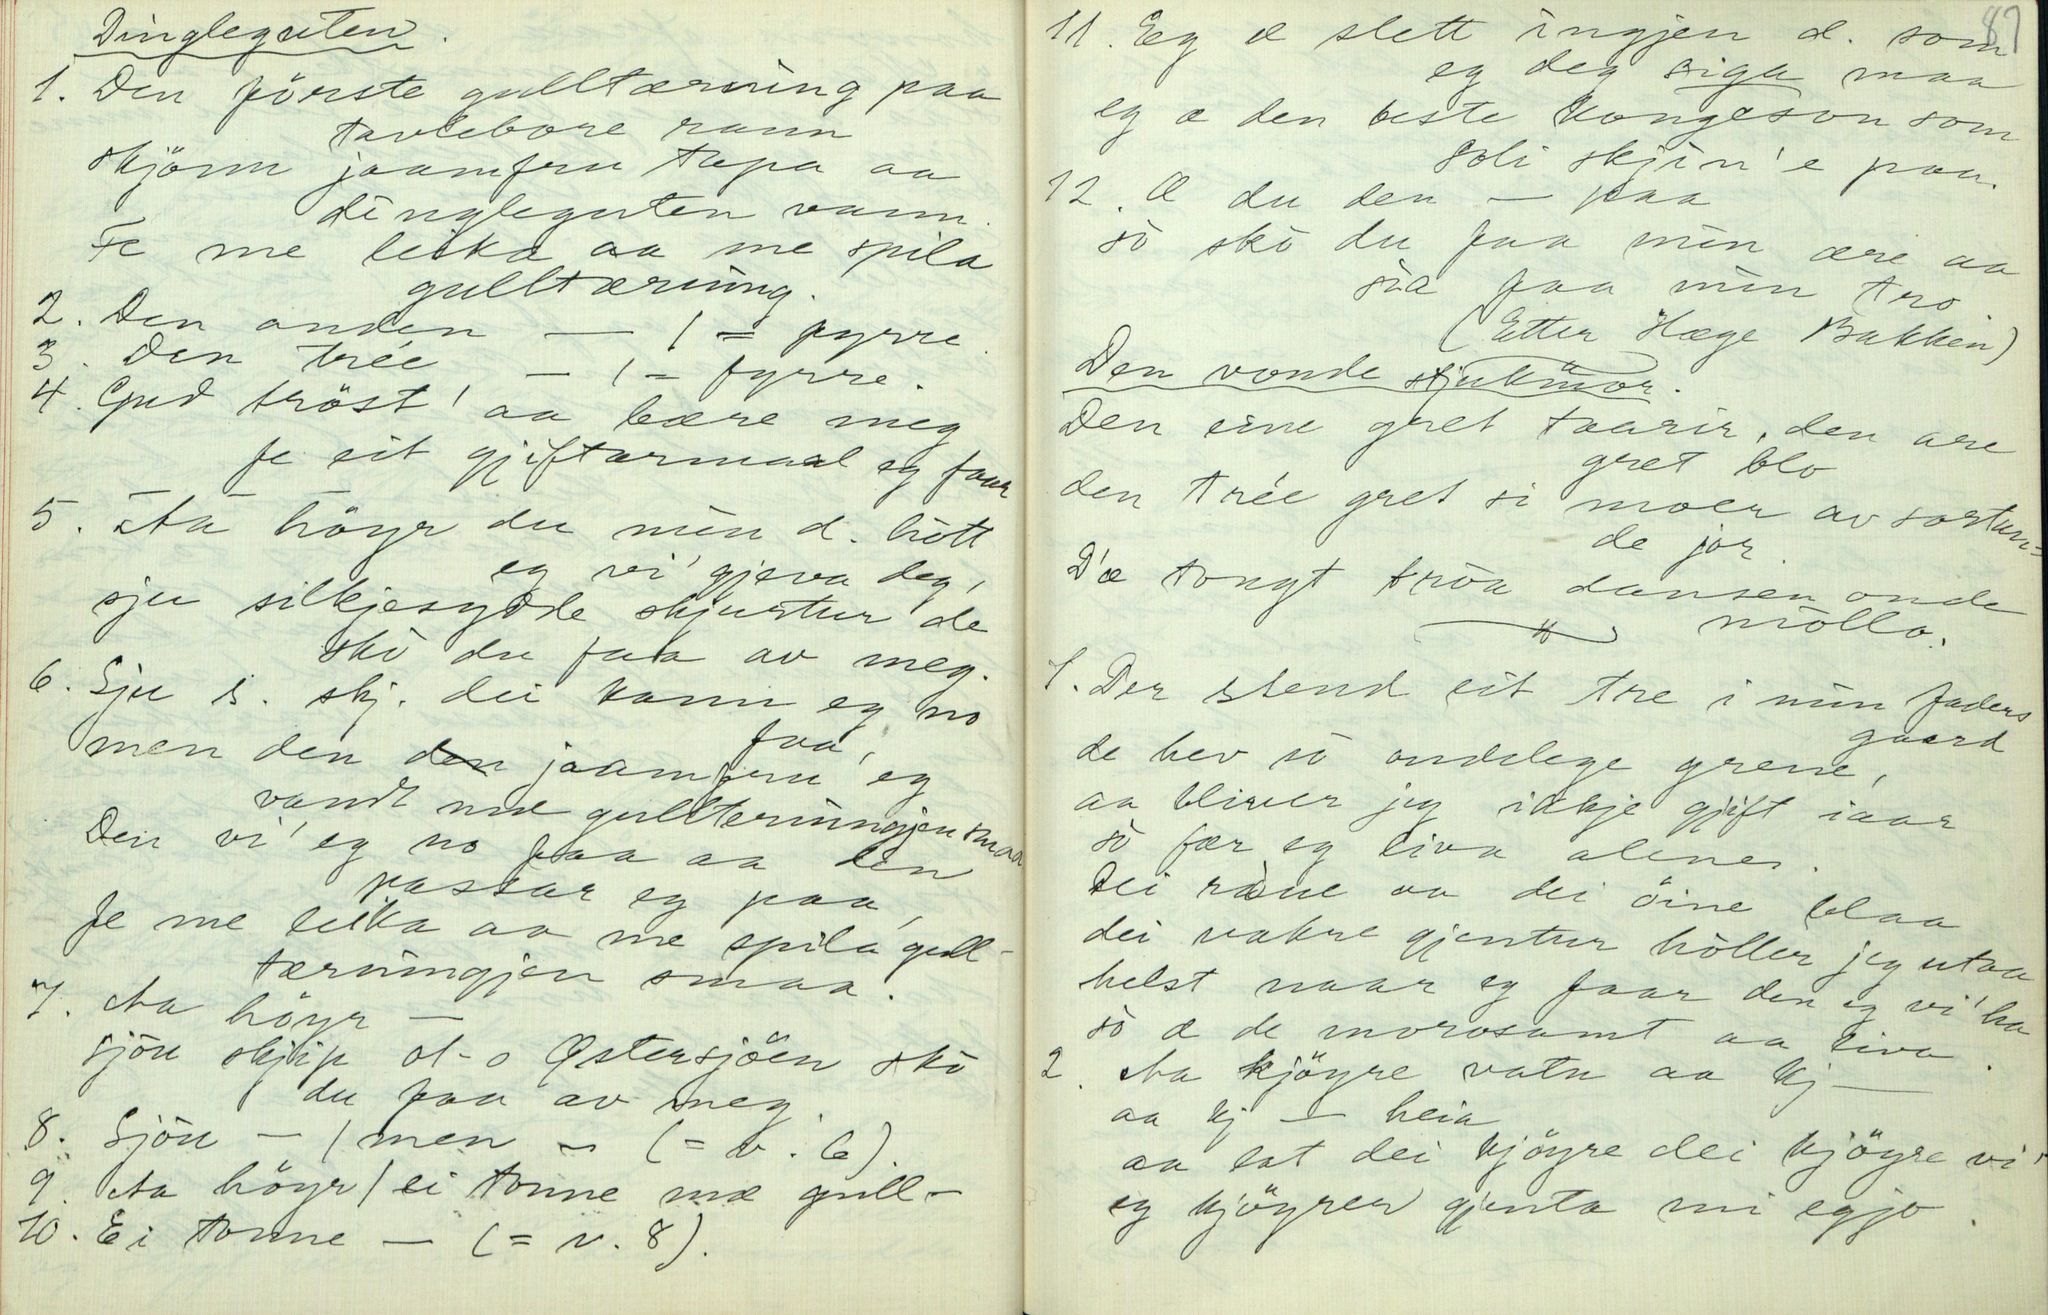 Dingleguten.
1. Den förste gulltærning paa
tavlebore rann
skjönn jaamfru tapa aa
dingleguten vann.
Fe me leika aa me spila
gulltærning.
2. Den anden — / = fyrre.
3. Den trée — / = fyrre.
4. Gud tröst' aa bære meg
fe eit gjiftarmaal eg faar
5. Aa höyr du min d. hött
eg vi' gjeva deg,
sju silkjesydde skjurtur de
skò du faa av meg.
6. Sju s. skj. dei kann eg no
faa,
men den den jaamfru eg
vandt me gullterningjen smaa
Den vi' eg no faa aa den
passar eg paa,
fe me leika aa me spila gull-
tærningjen smaa.
7. Aa höyr —
sjöu skjip ot-o Østersjöen skò
du faa av meg.
8. Sjöu — / men — (= v. 6).
9. Aa höyr / ei tonne mæ gull —
10. Ei tonne — (= v. 8).
87
11. Eg æ slett ingjen d. som
eg deg siga maa
eg æ den beste kongeson som
soli skjin'e paa.
12. Æ du den — paa
sò skò du faa min ære aa
sia faa min tro
(Etter Hæge Bakken)
Den vonde stjukmor.
Den eine gret taarir, den are
gret blo
den trée gret si moer av sortun-
de jor
D'æ tongt tröa dansen onde
mòllo.
1. Der stend eit tre i min faders
gaard
de hev sò ondelege grene,
aa bliver jeg ikkje gjift iaar
sò fær eg liva alene.
Dei röue aa dei öine blaa
dei vakre gjentur höller jeg utaa
helst naar eg faar den eg vi' ha
sò æ de morosamt aa liva.
2. Aa kjöyre vatn aa kj —
aa kj — heia
aa lat dei kjöyre dei kjöyre vi'
eg kjöyrer gjenta mi egjo.